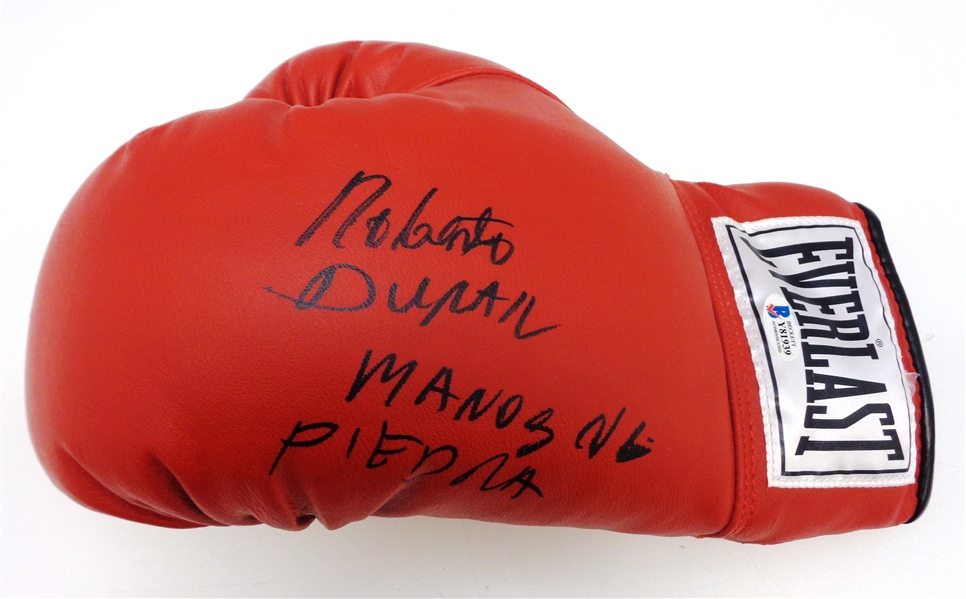 Roberto
Duran
MANOS DE
PIEDRA
EVERLAST
®
BECKETT
Y81939